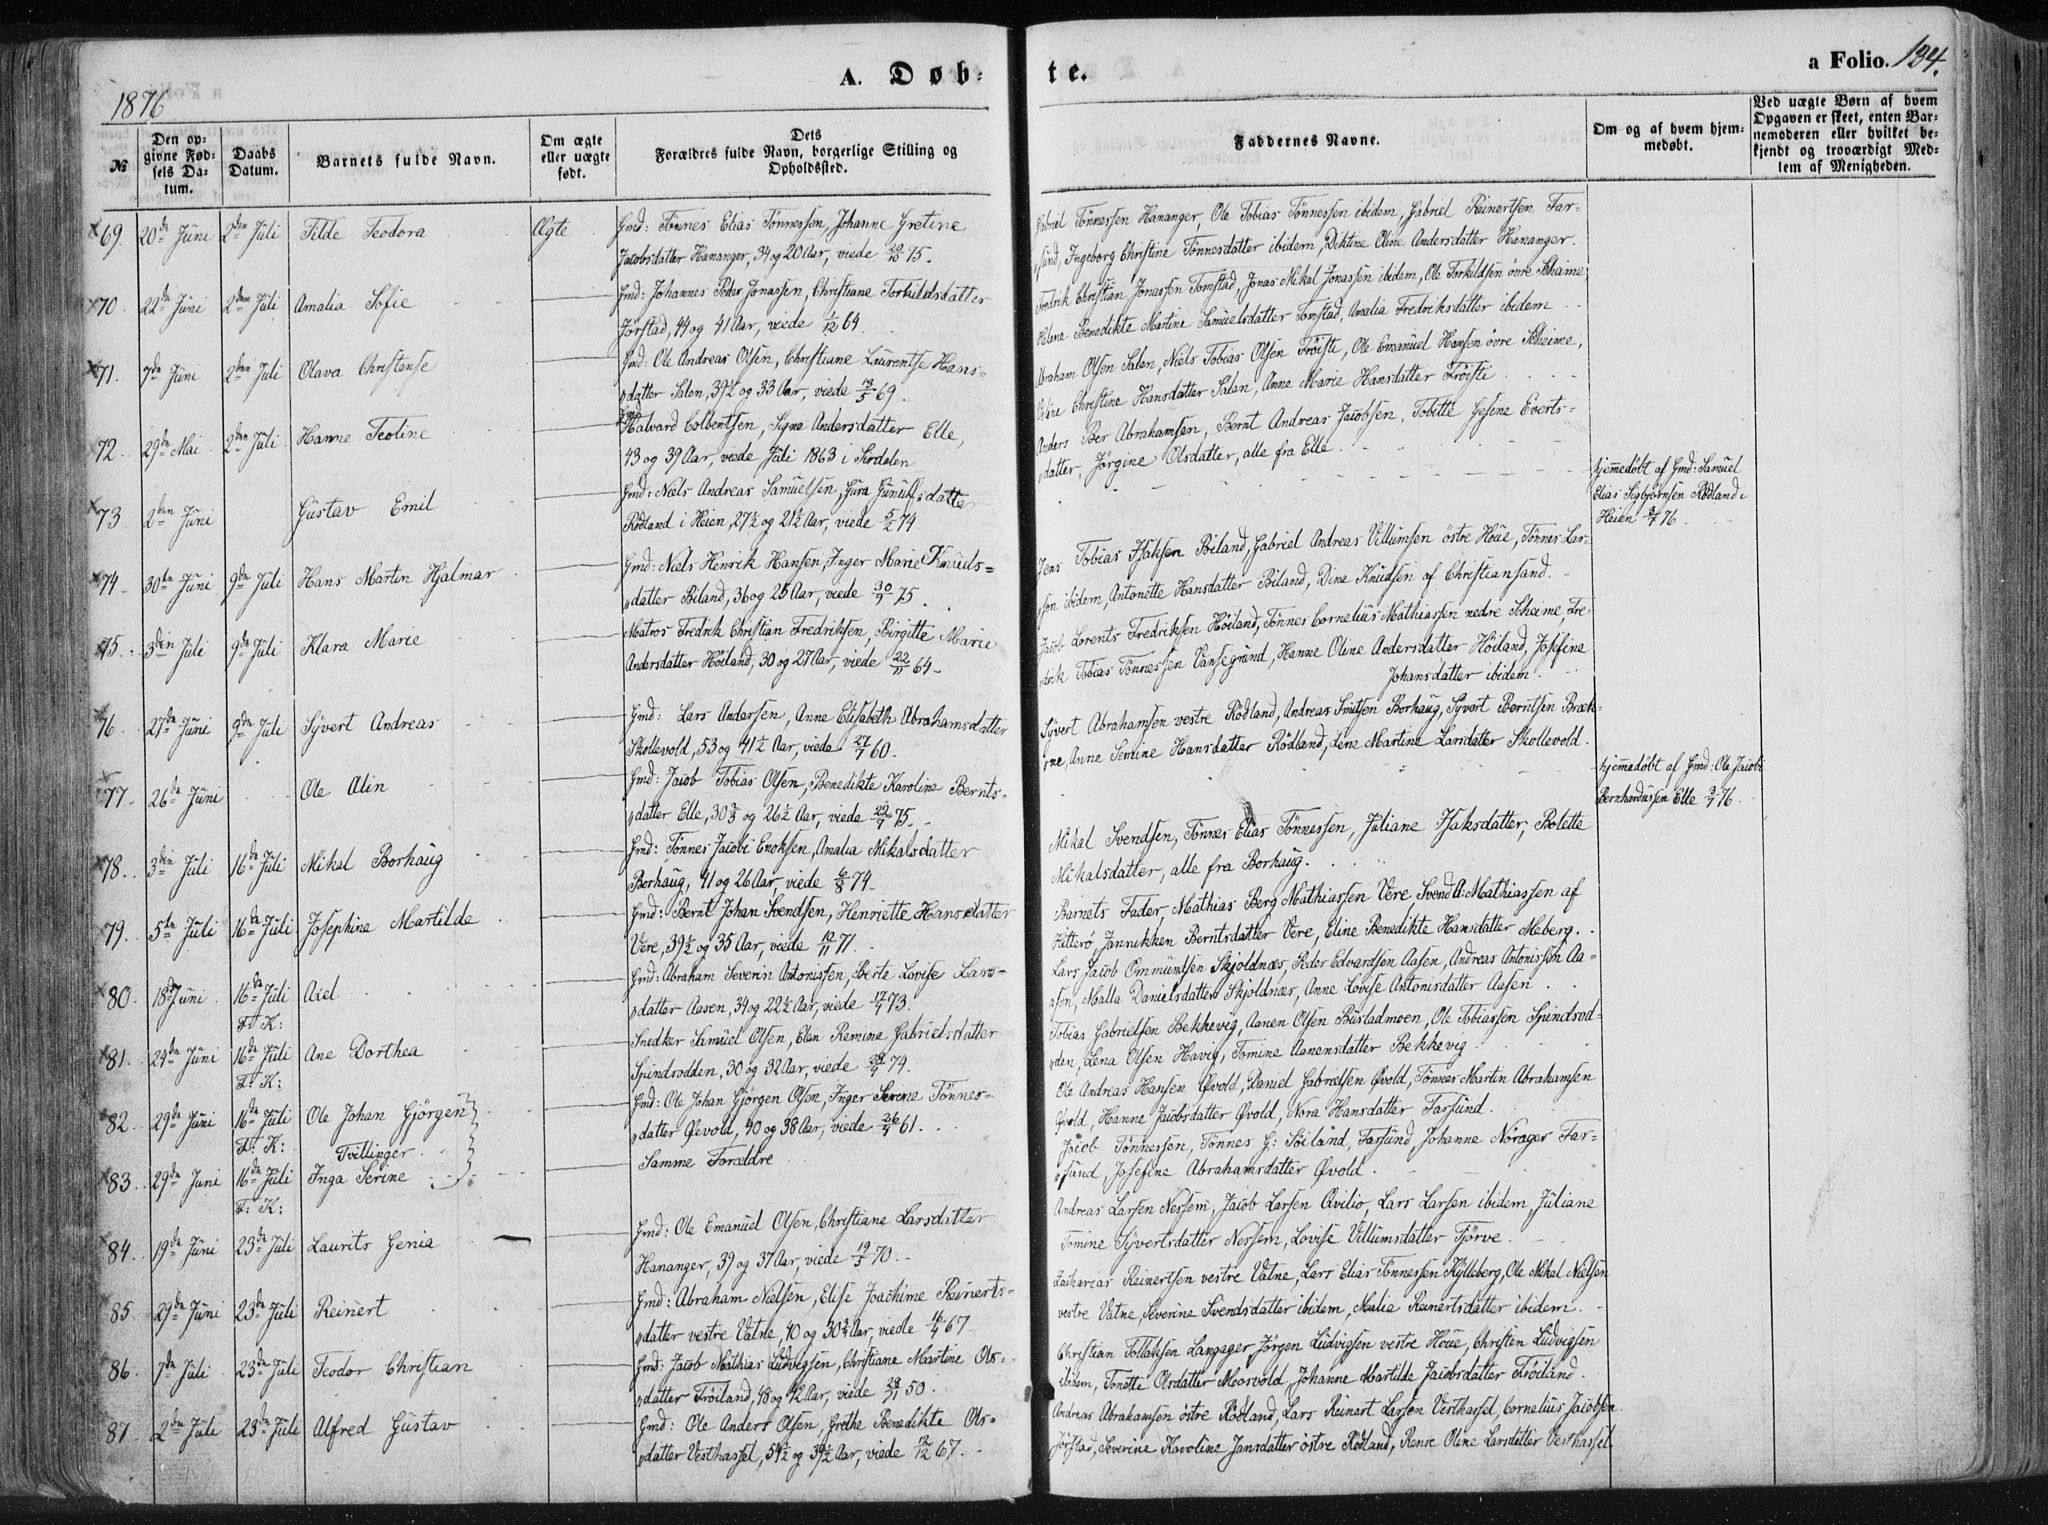 A. Døb-
te.
a Folio. 134.
1876
№
Den op-
givne Fød-
sels Da-
tum.
Daabs
Datum.
Barnets fulde Navn.
Om ægte
eller uægte
født.
Dets
Forældres fulde Navn, borgerlige Stilling og
Opholdssted.
Faddernes Navne.
Om og af hvem hjem-
medøbt.
Ved uægte Børn af hvem
Opgaven er skeet, enten Bar-
nemoderen eller hvilket be-
kjendt og troværdigt Med-
lem af Menigheden.
69. 20de Juni 2den Juli Tilde Teodora Ægte Gmd: Tönnes Elias Tönnessen, Johanne Gretine
Jacobsdatter Hananger, 34 og 20 Aar, viede 75.
Gabriel Tönnessen Hananger, Ole Tobias Tönnessen ibidem, Gabriel Reinertsen Far-
sund, Ingeborg Christine Tönnesdatter ibidem, Oline Andersdatter Hananger.
70. 22de Juni 2den Juli Amalia Sofie Gmd: Johannes Peder Jonassen, Christiane Torkildsdatter
Jörstad, 44 og 41 Aar, viede 1/12 64.
Fredrik Christian Jonassen Tomstad, Jonas Mikal Jonassen ibidem, Ole Torkildsen övre Skeime,
Helene Benedikte Martine Samuelsdatter Tomstad, Amalia Fredriksdatter ibidem
71. 7de Juni 2den Juli Olava Christense Gmd: Ole Andreas Olsen, Christiane Laurentse Hans-
datter Salen, 39½ og 33 Aar, viede 13/5 69.
Abraham Olsen Salen, Niels Tobias Olsen Tröisti, Ole Emanuel Hansen övre Skeime,
Christine Hansdatter Salen, Anne Marie Hansdatter Tröisti
72. 29de Mai 2den Juli Hanne Teoline Gmd Halvard Colbentsen, Signe Andersdatter Elle,
43 og 39 Aar, viede Juli 1863 i Sirdalen
Anders Ber Abrahamsen, Bernt Andreas Jacobsen, Tobitte Gesine Everts-
datter, Jörgine Olsdatter, alle fra Elle
73. 2den Juni Gustav Emil Gmd: Niels Andreas Samuelsen, Gura Gunulfsdatte
Rödland i Heien, 27½ og 21½ Aar, viede 5/2 74
hjemmedöbt af Gmd: Samuel
Elias Sigbjörnsen Rödland i
Heien 3/7 76.
74. 30te Juni 9de Juli Hans Martin Hjalmar Gmd: Niels Henrik Hansen, Inger Marie Knuds-
datter Biland, 36 og 25 Aar, viede 30/7 75.
Jens Tobias Isaksen Biland, Gabriel Andreas Villumsen östre Houe, Tönnes Lar-
sen ibidem, Antonette Hansdatter Biland, Dine Knudsen af Christiansand.
75. 3die Juli 9de Juli Klara Marie Matros Fredrik Christian Fredriksen, Birgitte Marie
Andersdatter Höiland, 30 og 27 Aar, viede 22/11 64.
Jacob Lorents Fredriksen Höiland, Tönnes Cornelius Mathiassen nedre Skeime, Fre-
drik Tobias Tönnessen Vansegrund, Hanne Oline Andersdatter Höiland, Josefine
Johansdatter ibidem.
76. 27de Juni 9de Juli Syvert Andreas Gmd: Lars Andersen, Anne Elisabeth Abrahamsdatter
Skollevold, 53 og 41½ Aar, viede 27/7 60.
Syvert Abrahamsen vestre Rödland, Andreas Smitsen Borhaug, Syvert Berntsen Bræk-
ne, Anne Semine Hansdatter Rödland, Lene Martine Larsdatter Skollevold.
77. 26de Juni Ole Alin Gmd: Jacob Tobias Olsen, Benedikte Karoline Bernts-
datter Elle, 30 og 26½ Aar, viede 22/7 75.
hjemmedöbt af Gmd: Ole Jacob
Bernhardussen Elle 3/7 76.
78. 3die Juli 16de Juli Mikal Borhaug Gmd: Tönnes Jacobi Enoksen, Amalia Mikalsdatter
Borhaug, 41 og 26 Aar, viede 6/8 74.
Mikal Svendsen, Tönnes Elias Tönnessen, Juliane Isaksdatter, Bolette
Mikalsdatter, alle fra Borhaug.
79. 5te Juli 16de Juli Josephine Martilde Gmd: Bernt Johan Svendsen, Henriette Hansdatter
Vere, 39½ og 35 Aar, viede 71.
Barnets Fader, Mathias Berg Mathiassen Vere Svend A: Mathiassen af
Hitterö, Jannikken Berntsdatter Vere, Eline Benedikte Hansdatter Meberg.
80. 18de Juni 16de Juli F: K: Axel Gmd: Abraham Severin Antonissen, Berte Lovise Lars-
datter Aasen, 34 og 22½ Aar, viede 17/4 73.
Lars Jacob Ommundsen Skjoldnæs, Peder Edvardsen Aasen, Andreas Antonissen Aa-
sen, Malla Danielsdatter Skjoldnæs, Anne Lovise Antonisdatter Aasen
81. 24de Juni 16de Juli F: K: Ane Dorthea Snedker Samuel Olsen, Elen Remine Gabrielsdatter
Spindsodden, 30 og 32 Aar, viede
Tobias Gabrielsen Bekkevig, Aanen Olsen Bustadmoen, Ole Tobiassen Spindsod-
den, Lena Olsen Havig, Tomine Aanensdatter Bekkevig
82. 29de Juni 16de Juli F: K: Ole Johan Gjörgen Gmd: Ole Johan Gjörgen Olsen, Inger Serine Tönnes-
datter Övold, 40 og 38 Aar, viede 61.
Ole Andreas Hansen Övold, Daniel Gabrielsen Övold, Tönnes Martin Abrahamsen
Övold, Hanne Jacobsdatter Övold, Nora Hansdatter Farsund.
Tvillinger
83. 29de Juni 16de Juli F: K: Inga Serine Samme Forældre
Jacob Tönnessen, Tönnes G: Söiland, Farsund, Johanne Norager Far-
sund, Josefine Abrahamsdatter Övold.
84. 19de Juni 23de Juli Laurits Genia Gmd: Ole Emanuel Olsen, Christiane Larsdatter
Hananger, 39 og 37 Aar, viede 70.
Andreas Larsen Nessem, Jacob Larsen Qvilio, Lars Larsen ibidem Juliane
Tomine Syvertsdatter Nessem, Lovise Villumsdatter Tjörve.
85. 29de Juni 23de Juli Reinert Gmd: Abraham Nielsen, Elise Joachime Reinerts-
datter vestre Vatne, 40 og 30 Aar, viede 67
Zacharias Reinertsen vestre Vatne, Lars Elias Tönnessen Kylleberg, Ole Mikal Nielsen
vestre Vatne, Severine Svendsdatter ibidem, Malia Reinertsdatter ibidem.
86. 7de Juli 23de Juli Teodor Christian Gmd: Jacob Mathias Ludvigsen, Christiane Martine Ols-
datter Tröiland, 48 og 42 Aar, viede 50.
Christian Tollaksen Langager, Jörgen Ludvigsen vestre Houe, Christen Ludvigsen
ibidem, Tonette Olsdatter Morvold, Johanne Martilde Jacobsdatter Tröiland.
87. 2den Juli 23de Juli Alfred Gustav Gmd: Ole Anders Olsen, Grethe Benedikte Ols-
datter Vesthassel, 54½ og 39½ Aar, viede 67.
Andreas Abrahamsen östre Rödland, Lars Reinart Larsen Vesthassel, Cornelius Jacobsen
Jörstad, Severine Karoline Jansdatter östre Rödland, Oline Larsdatter Vesthassel